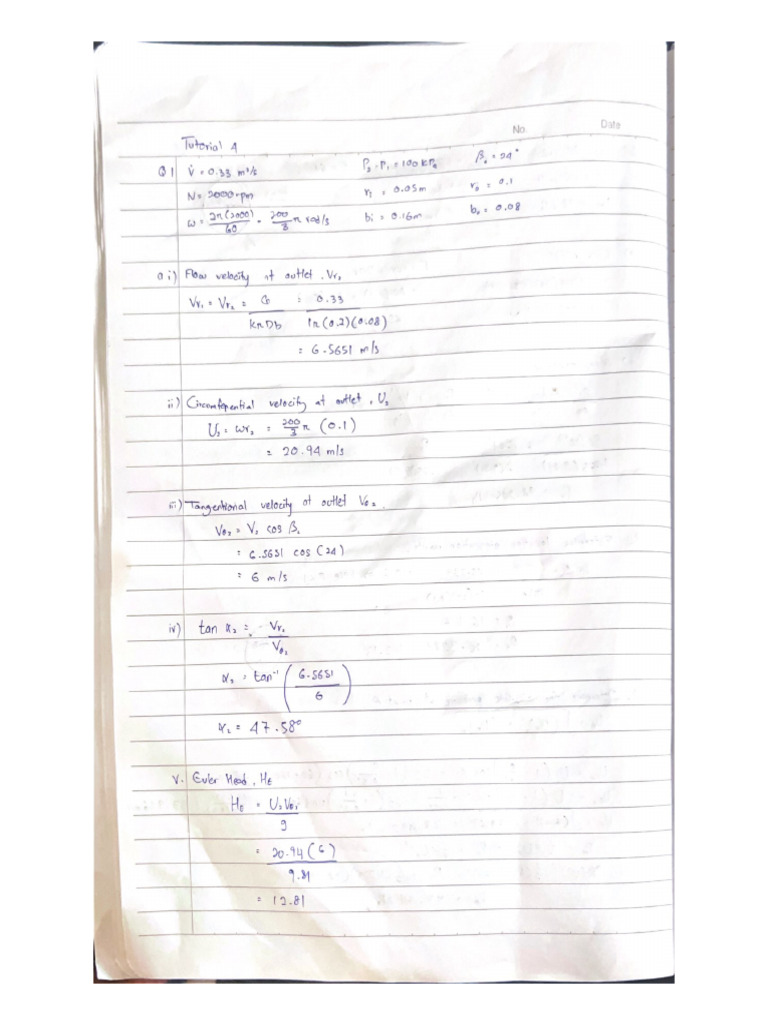 No. Date
Tutorial 4
Q1 V̇ = 0.33 m³/s P₂-P₁ = 100 kPa β₂ = 24°
N = 2000 rpm r₁ = 0.05m r₀ = 0.1
ω = 2π(2000)/60 = 200/3 π rad/s bi = 0.16m b₀ = 0.08
a i) Flow velocity at outlet, Vr₂
Vr₁ = Vr₂ = Q/kπDb = 0.33/1π(0.2)(0.08)
= 6.5651 m/s
ii) Circumferential velocity at outlet, U₂
U₂ = ωr₂ = 200/3 π (0.1)
= 20.94 m/s
iii) Tangentional velocity at outlet Vθ₂.
Vθ₂ = V₂ cos β₂
= 6.5651 cos (24)
= 6 m/s
iv) tan α₂ = Vr₂/Vθ₂
α₂ = tan⁻¹ (6.5651/6)
α₂ = 47.58°
v. Euler Head, HE
HE = U₂Vθ₂/g
= 20.94(6)/9.81
= 12.81